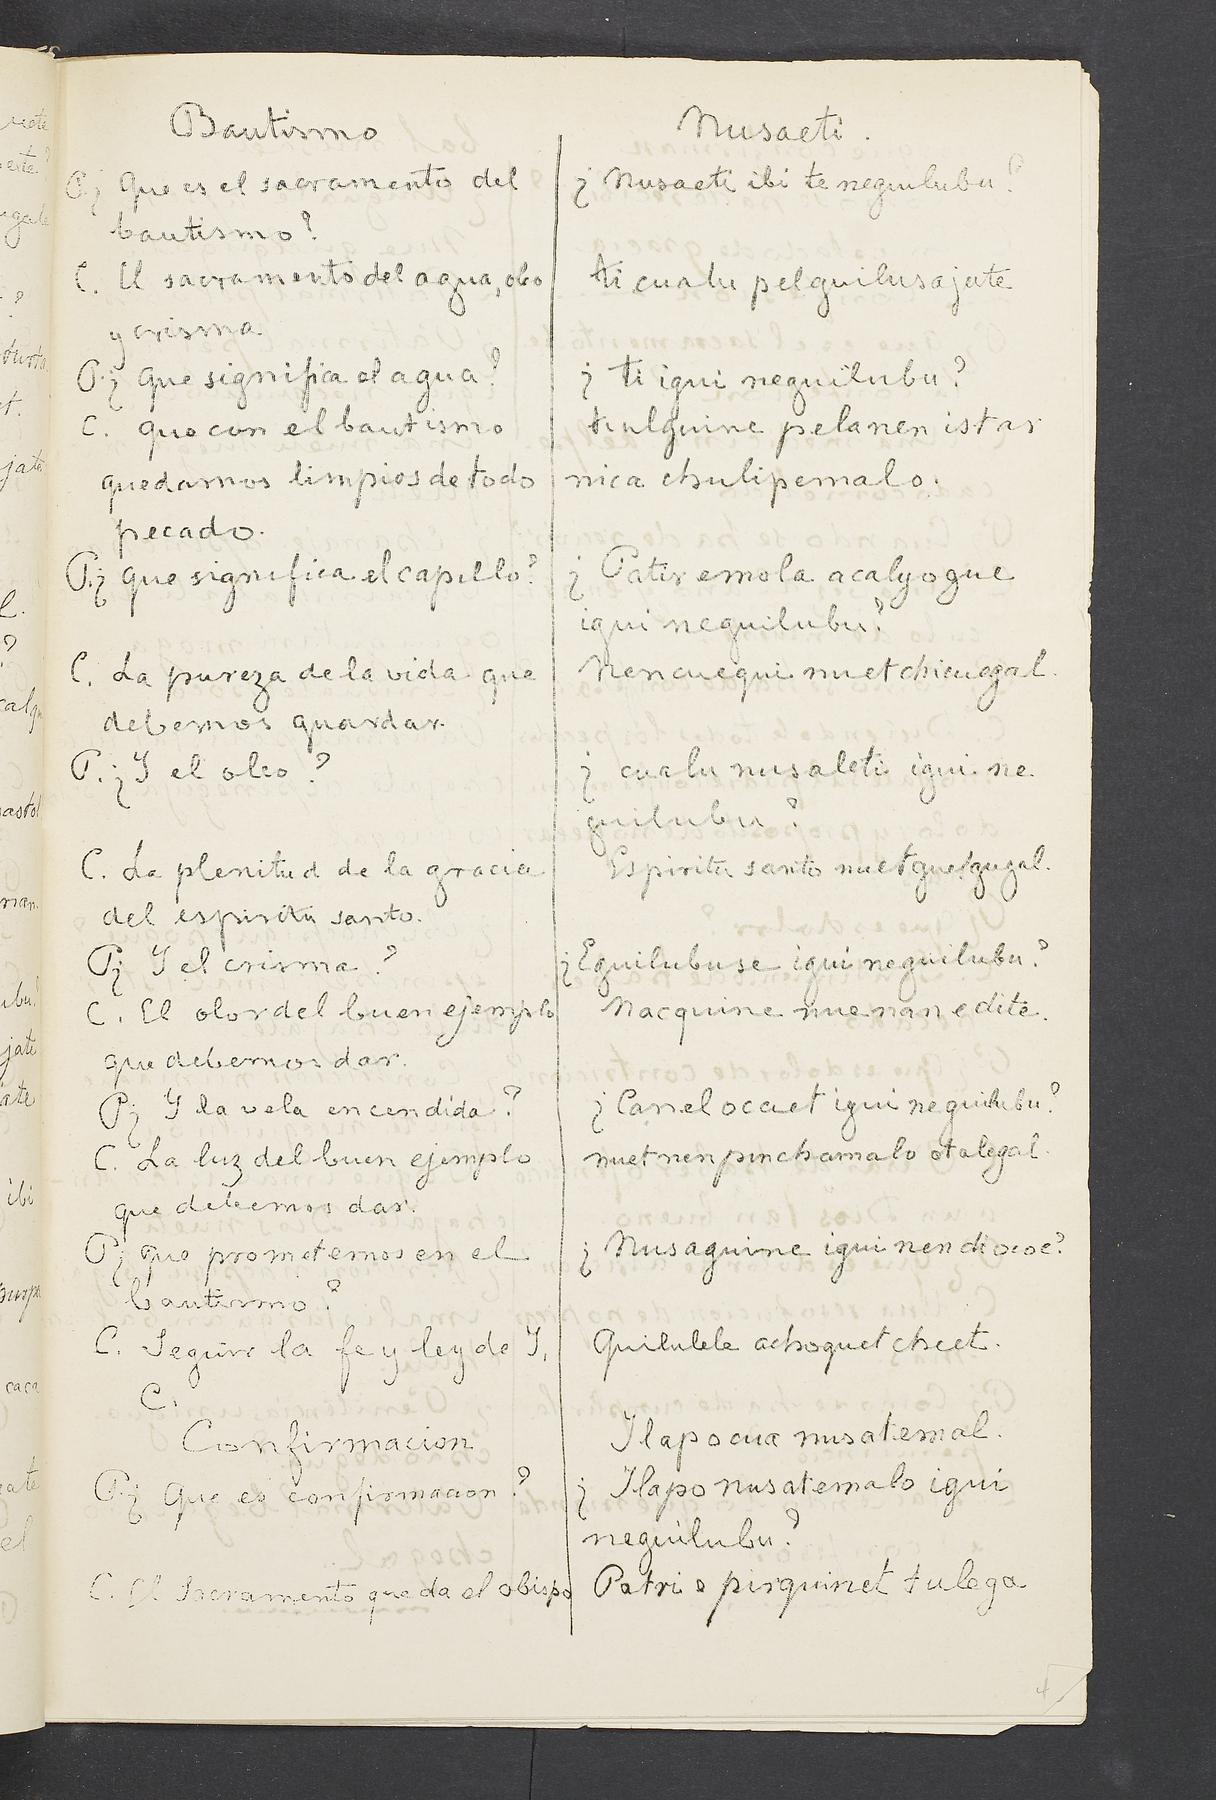 Bautismo
P. ¿ Que es el sacramento del
bautismo?
C. El sacramento del agua, oleo
y crisma
P. ¿ Que significa el agua?
C. que con el bautismo
quedamos limpios de todo
pecado.
P. ¿ que significa el capillo?
C. La pureza de la vida que
debemos guardar.
P. ¿ Y el oleo?
C. La plenitud de la gracia
del espiritu santo.
P ¿ Y el crisma?
C. El olor del buen ejemplo
que debemos dar.
P ¿ Y la vela encendida?
C. La luz del buen ejemplo
que debemos dar.
P ¿ que prometemos en el
bautismo?
C. Seguir la fe y ley de J.
C.
Confirmacion
P. ¿ Que es confirmacion?
C. El Sacramento que da el obispo
Nusaeti.
¿ Nusaeti ibi te neguilubu?
ti cualu pelguilusajate
¿ ti igui neguilubu?
tiulguine pelanen istar
nica chulipemalo.
¿ Patir emola acalyogue
igui neguilubu?
Nencuequi nuet chicuegal.
¿ cualu nusaleti igui ne
guilubu?
Espiritu santo nuetguelgugal.
¿ Eguilubuse igui neguilubu?
Nacquine nuenan edite.
¿ Canel occuet igui neguilubu?
nuet nen pinchamalo otalegal.
¿ Nusaguine igui nen dicoe?
Quilulele achoguet cheet.
Ilapocua nusatemal.
¿ Ilapo nusatemalo igui
neguilubu?
Patri o pirguinet tulega
4